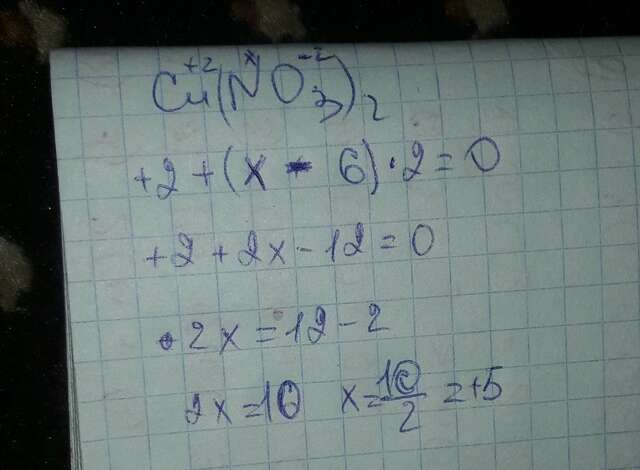 Cu⁺²(NˣO₃⁻²)₂
+2+(x - 6)·2=0
+2+2x-12=0
2x=12-2
2x=10 x=10/2=+5